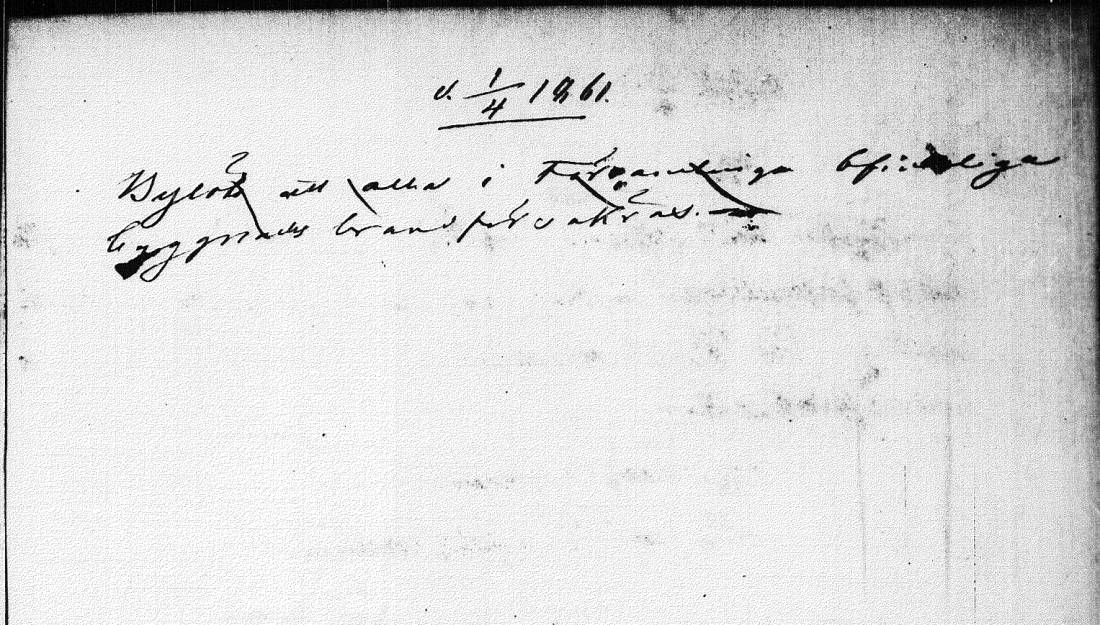 d. 1/4 1861.
att alla i Församlinga befinteliga
byggnader brandförsäkras.